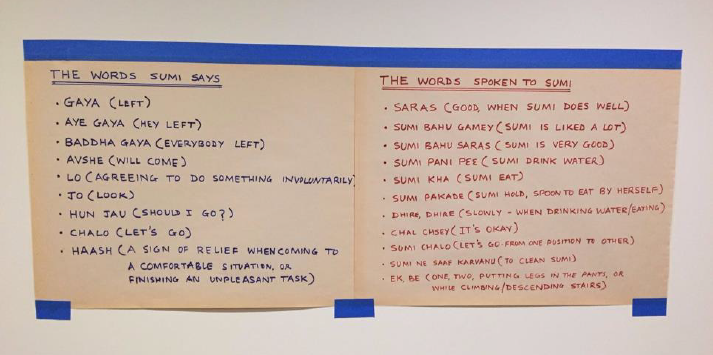 THE WORDS SUMI SAYS
• GAYA (LEFT)
• AYE GAYA (HEY LEFT)
• BADDHA GAYA (EVERYBODY LEFT)
• AVSHE (WILL COME)
• LO (AGREEING TO DO SOMETHING INVOLUNTARILY)
• JO (LOOK)
• HUN JAU (SHOULD I GO?)
• CHALO (LET'S GO)
• HAASH (A SIGN OF RELIEF WHEN COMING TO
A COMFORTABLE SITUATION, OR
FINISHING AN UNPLEASANT TASK)
THE WORDS SPOKEN TO SUMI
• SARAS (GOOD, WHEN SUMI DOES WELL)
• SUMI BAHU GAMEY (SUMI IS LIKED A LOT)
• SUMI BAHU SARAS (SUMI IS VERY GOOD)
• SUMI PANI PEE (SUMI DRINK WATER)
• SUMI KHA (SUMI EAT)
• SUMI PAKADE (SUMI HOLD, SPOON TO EAT BY HERSELF)
• DHIRE, DHIRE (SLOWLY - WHEN DRINKING WATER/EATING)
• CHAL CHSEY (IT'S OKAY)
• SUMI CHALO (LET'S GO FROM ONE POSITION TO OTHER)
• SUMI NE SAAF KARVANU (TO CLEAN SUMI)
• EK, BE (ONE, TWO, PUTTING LEGS IN THE PANTS, OR
WHILE CLIMBING/DESCENDING STAIRS)